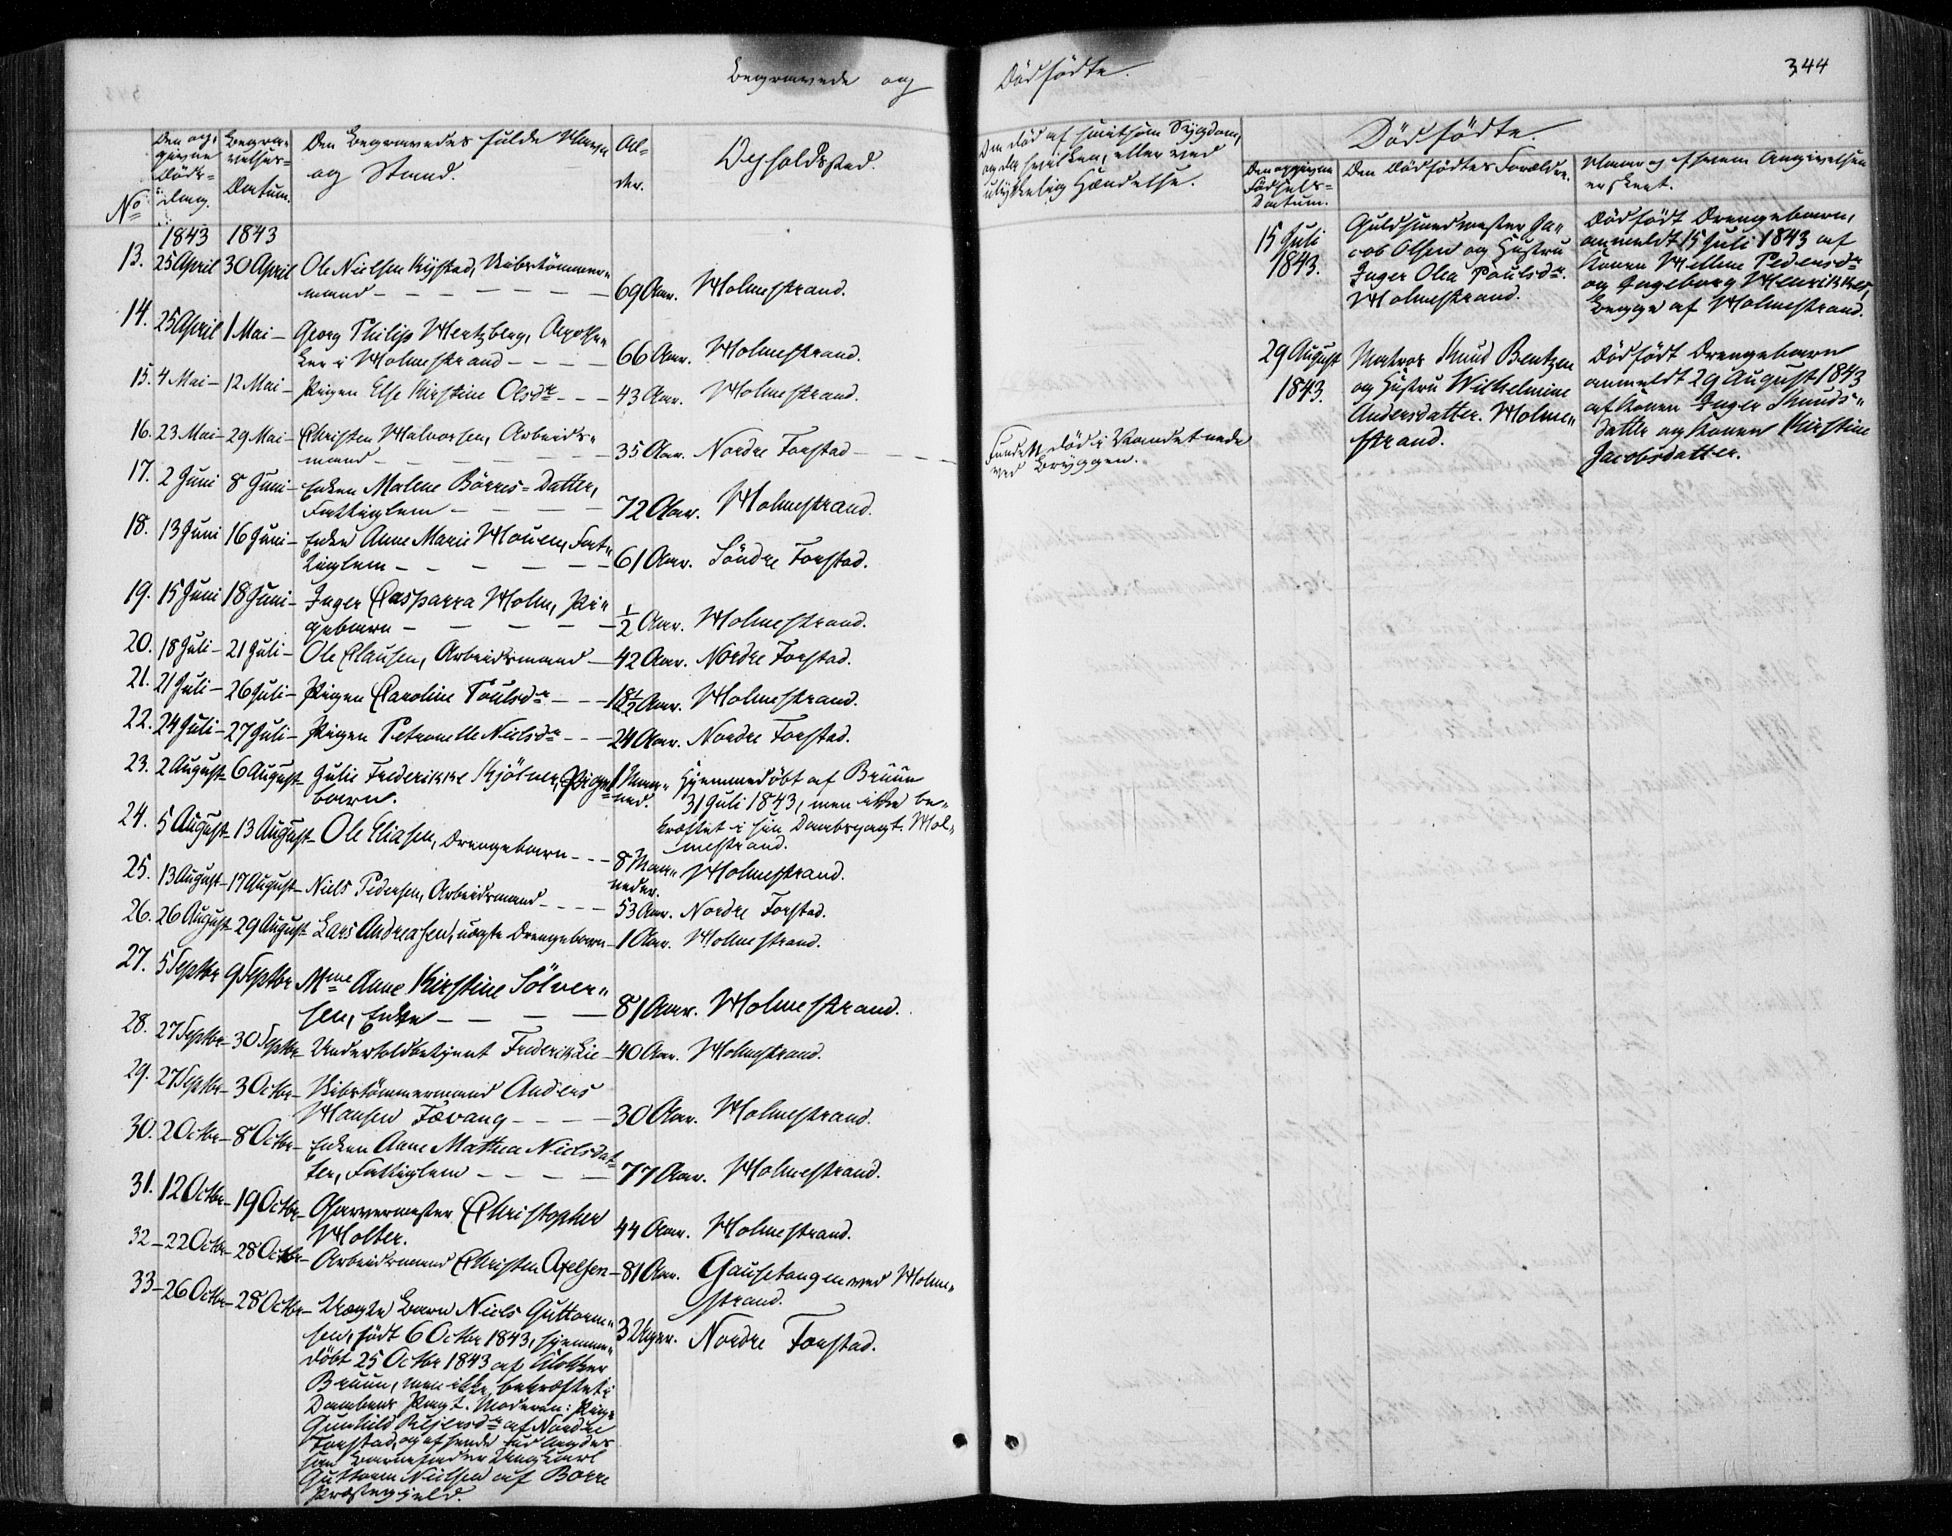 Begravede og Dödfödte.
344
No
Den opgivne Döds-dag.
Begravelses-Datum.
Den Begravedes fulde Navn og Stand.
Alder.
Opholdssted.
Om död af smitsom Sygdom, og da hvilken, eller ved ulykkelig Hændelse.
1843 1843
13. 25 April 30 April Ole Nielsen Rystad, Skibstömmer-
mand - 69 Aar. Holmestrand.
14. 25 April 1 Mai - Georg Philip Hertzberg, Apothe-
ker i Holmestrand - 66 Aar. Holmestrand.
15. 4 Mai - 12 Mai - Pigen Else Kirstine Olsdr - 43 Aar. Holmestrand.
16. 23 Mai - 29 Mai - Christen Halvorsen, Arbeids-
mand - 35 Aar. Nordre Forstad - Fundet död i Vandet nede
ved Bryggen.
17. 2 Juni 8 Juni - Enken Malene Börres-Datter,
Fattiglem - 72 Aar. Holmestrand.
18. 13 Juni 16 Juni - Enke Anne Marie Mouen, Fat-
tiglem - 61 Aar. Söndre Forstad.
19. 15 Juni 18 Juni - Inger Casparra Holm, Pi-
gebarn - 1/2 Aar. Holmestrand.
20. 18 Juli - 21 Juli - Ole Clausen, Arbeidsmand - 42 Aar. Nordre Forstad.
21. 21 Juli - 26 Juli - Pigen Caroline Poulsdr - 18 1/2 Aar. Holmestrand.
22. 24 Juli - 27 Juli - Pigen Petronelle Nielsdr - 24 Aar. Nordre Forstad.
23. 2 August 6 August Julie Frederikke Kjölner, Pige-
barn. 1 Maa-
ned. Hjemmedöbt af Bruun
31 Juli 1843, men ikke be-
kræftet i sin Daabspagt. Hol-
mestrand.
24. 5 August 13 August - Ole Eliasen, Drengebarn - 8 Maa-
neder. Holmestrand.
25. 13 August - 17 August - Niels Pedersen, Arbeidsmand - 53 Aar. Nordre Forstad.
26. 26 August - 29 August Lars Andreasen, uægte Drengebarn - 1 Aar. Holmestrand.
27. 5 Septbr 9 Septbr Mme Anne Kirstine Sölver-
sen, Enke - 81 Aar. Holmestrand.
28. 27 Septbr - 30 Septbr Undertoldbetjent Frederik Lie - 40 Aar. Holmestrand.
29. 27 Septbr - 3 Octbr - Skibstömmermand Anders
Hansen Tævang - 30 Aar. Holmestrand.
30. 2 Octbr - 8 Octbr - Enken Anne Mathea Nielsdat-
ter, Fattiglem - 77 Aar. Holmestrand.
31. 12 Octbr - 19 Octbr - Garvermester Christopher
Holter. 44 Aar. Holmestrand.
32 - 22 Octbr - 28 Octbr - Arbeidsmand Christen Axelsen - 81 Aar. Gausetangen ved Holme-
strand.
33 - 26 Octbr - 28 Octbr - Uægte Barn Niels Guttorm-
sen, födt 6 Octbr 1843, hjemme-
döbt 25 Octbr 1843 af Klokker
Bruun, men ikke bekræftet i
Daabens Pagt. Moderen: Pige
Gunhild Reiersdr af Nordre
Forstad, og af hende udlagdes
som Barnefader Ungkarl
Guttorm Nielsen af Borre
Præstegjeld. 3 Uger. Nordre Forstad.
Dödfödte.
Den opgivne Födsels-Datum.
Den Dödfödtes Forældre.
Naar og af hvem Angivelsen er skeet.
15 Juli
1843.
Guldsmedmester Ja-
cob Olsen og Hustru
Inger Olea Poulsdr.
Holmestrand.
Dödfödt Drengebarn,
anmeldt 15 Juli 1843 af
Konen Hellene Pedersdr
og Ingeborg Henrikke,
begge af Holmestrand.
29 August
1843.
Matros Knud Bentzen
og Hustru Wilhelmine
Andersdatter. Holme-
strand.
Dödfödt Drengebarn
anmeldt 29 August 1843
af Konen Inger Knuds-
datter og Konen Kirstine
Jacobsdatter.